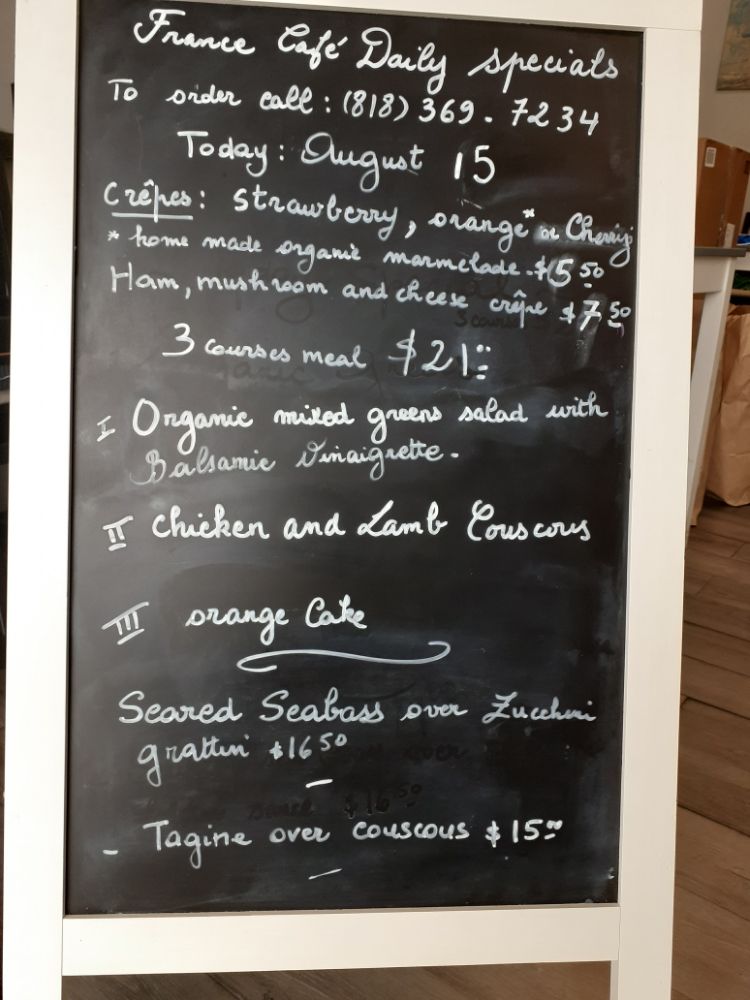 France Café Daily specials
To order call : (818) 369 . 7234
Today : August 15
Crêpes : Strawberry, orange* or Cherry
* home made organic marmelade - $5 50
Ham, mushroom and cheese crêpe $7 50
3 courses meal $21 00
I Organic mixed greens salad with
Balsamic Vinaigrette -
II Chicken and Lamb Couscous
III orange Cake
Seared Seabass over Zucchini
grattin $16 50
- Tagine over couscous $15 00